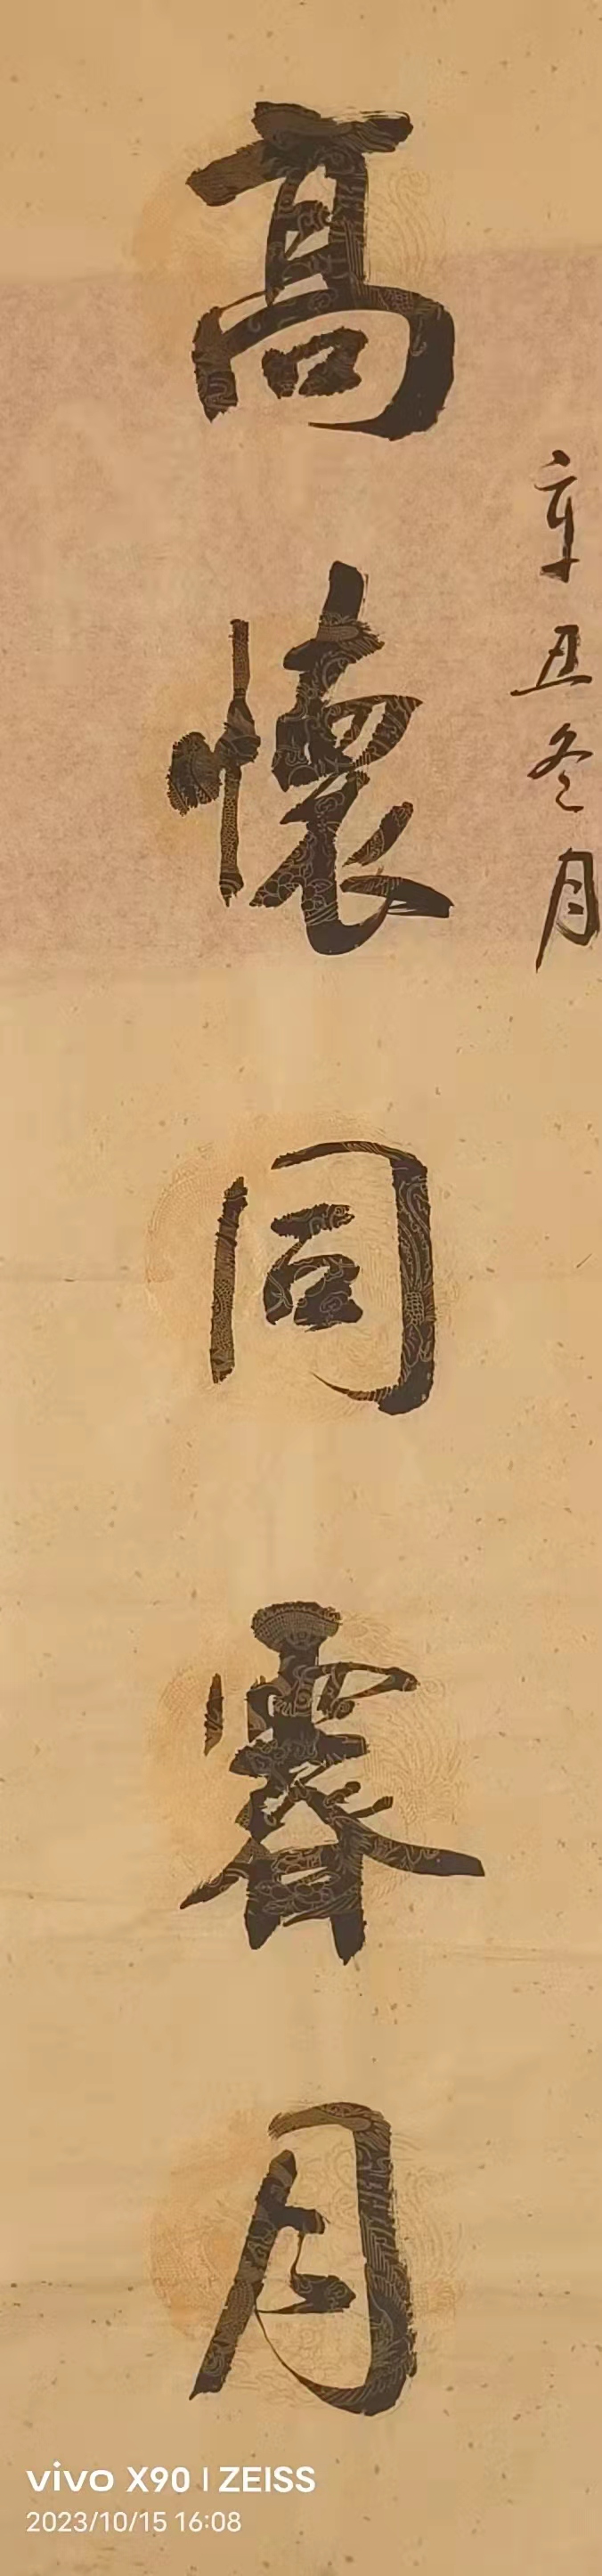 辛丑冬月
高懷同霽月
vivo X90 | ZEISS
2023/10/15 16:08